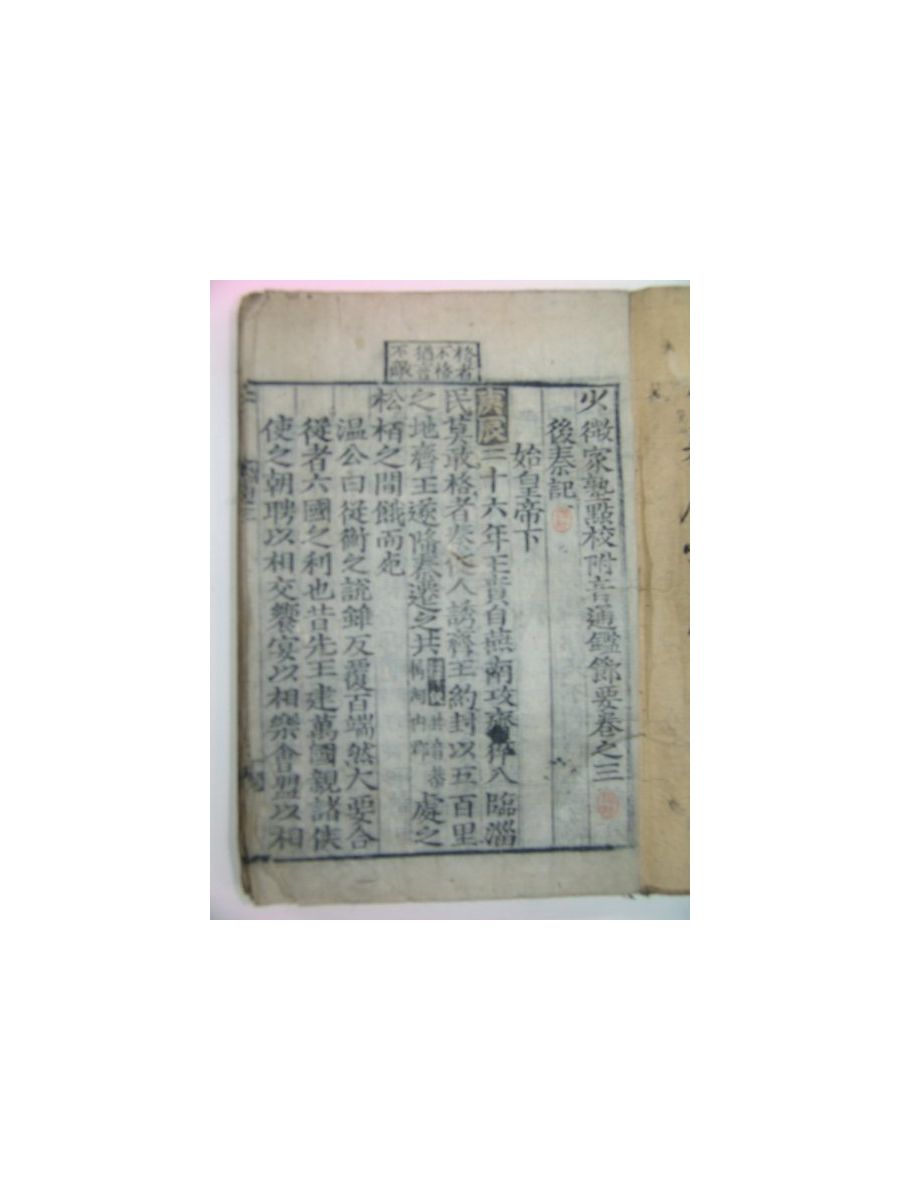 少微家塾點校附音通鑑節要卷之三
後秦記
始皇帝下
庚辰二十六年王賁自燕南攻齊猝入臨淄
民莫敢格者秦使人誘齊王約封以五百里
之地齊王遂降秦遷之共處之
松栢之間餓而死
温公曰從衡之說雖反覆百端然大要合
從者六國之利也昔先王建萬國親諸侯
使之朝聘以相交饗宴以相樂會盟以相
格者
不格
猶言
不敵